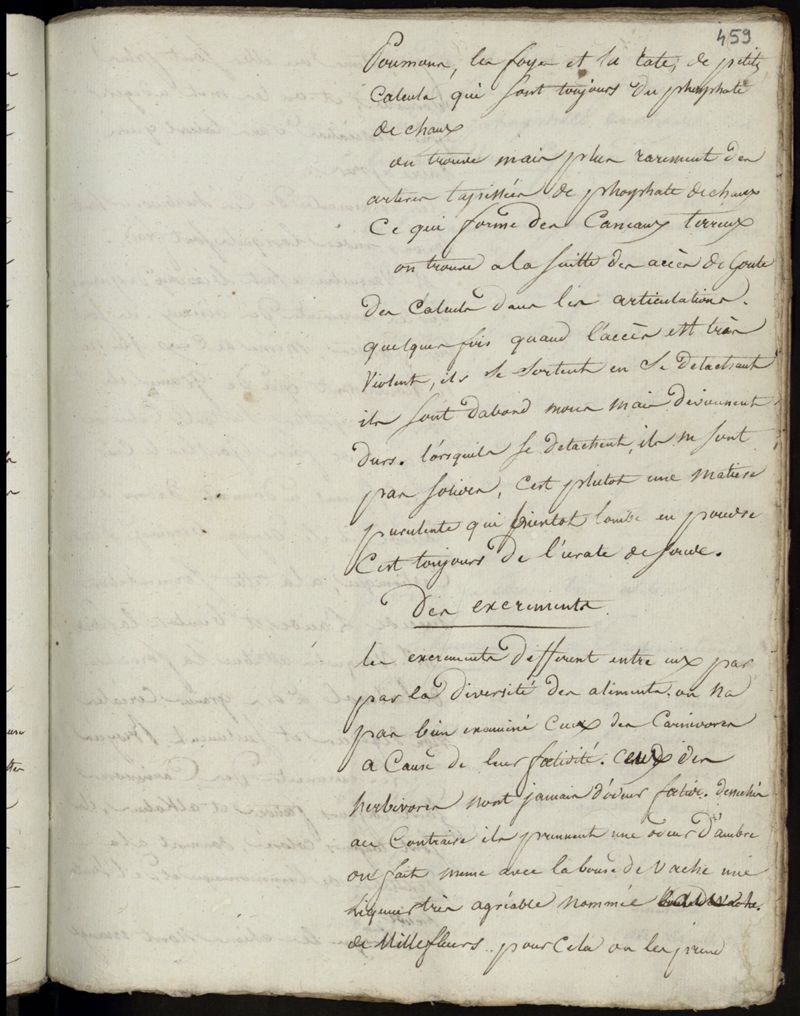 459
Poumons, les foyes et la rate, de petits
Calculs qui sont toujours du phosphate
de chaux
on trouve mais plus rarement des
arteres tapissées de phosphate de chaux
Ce qui forme des Caneaux terreux
on trouve a la suitte des accès de Goute
des Calculs dans les articulations.
quelques fois quand l'accès est très
violent, ils se sortent en se detachant
ils sont dabord mous mais deviennent
durs. lorsquils se detachent, ils ne sont
pas solides, C'est plutot une matiere
purulente qui bientot tombe en poudre
C'est toujours de l'urate de soude.
Des excrements
les excrements different entre eux par
par la diversité des aliments. on na
pas bien examiné Ceux des Carnivores
a Cause de leur foetidité. Ceux des
herbivores nont jamais d'odeur foetide. dessechés
au Contraire ils prennent une odeur d'ambre
on fait meme avec la bouse de vache une
Liqueur très agréable nommée
de Millefleurs. pour Cela on les prend